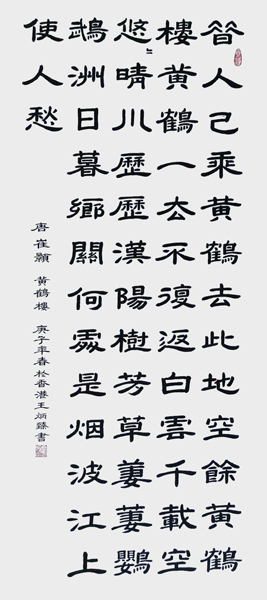 昔人已乘黄鶴去此地空餘黄鶴
樓黄鶴一去不復返白雲千載空
悠〻晴川歷歷漢陽樹芳草萋萋鸚
鵡洲日暮鄉關何處是烟波江上
使人愁
唐崔顥 黄鶴樓 庚子年春於香港王炳臻書